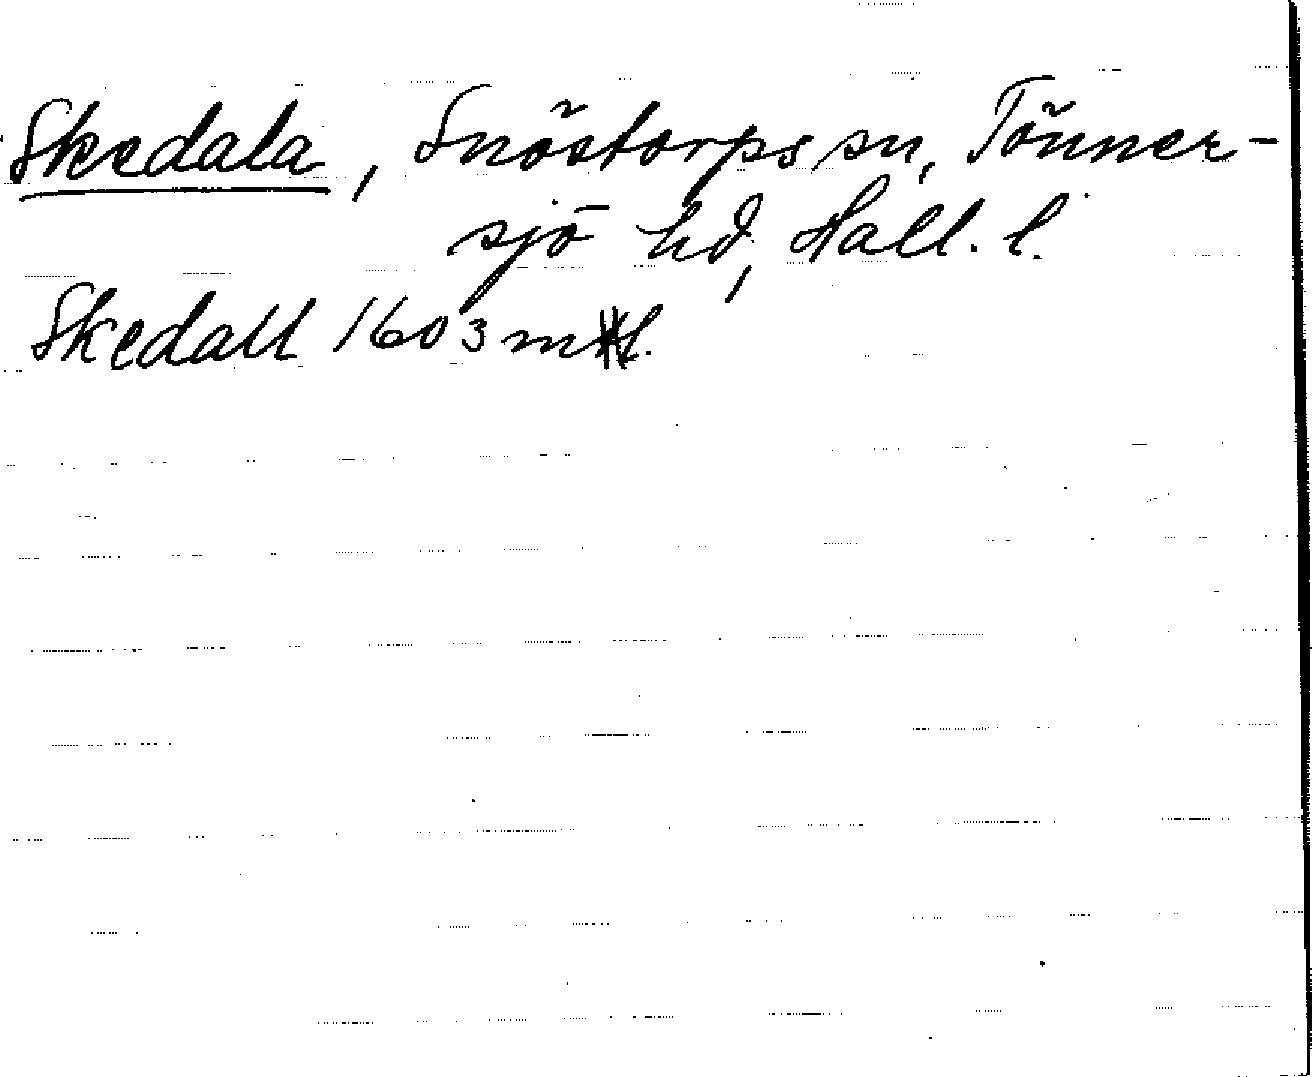 Skedala, Snöstorps sn, Tönner-
sjö hd, Hall. l.
Skedall 1603